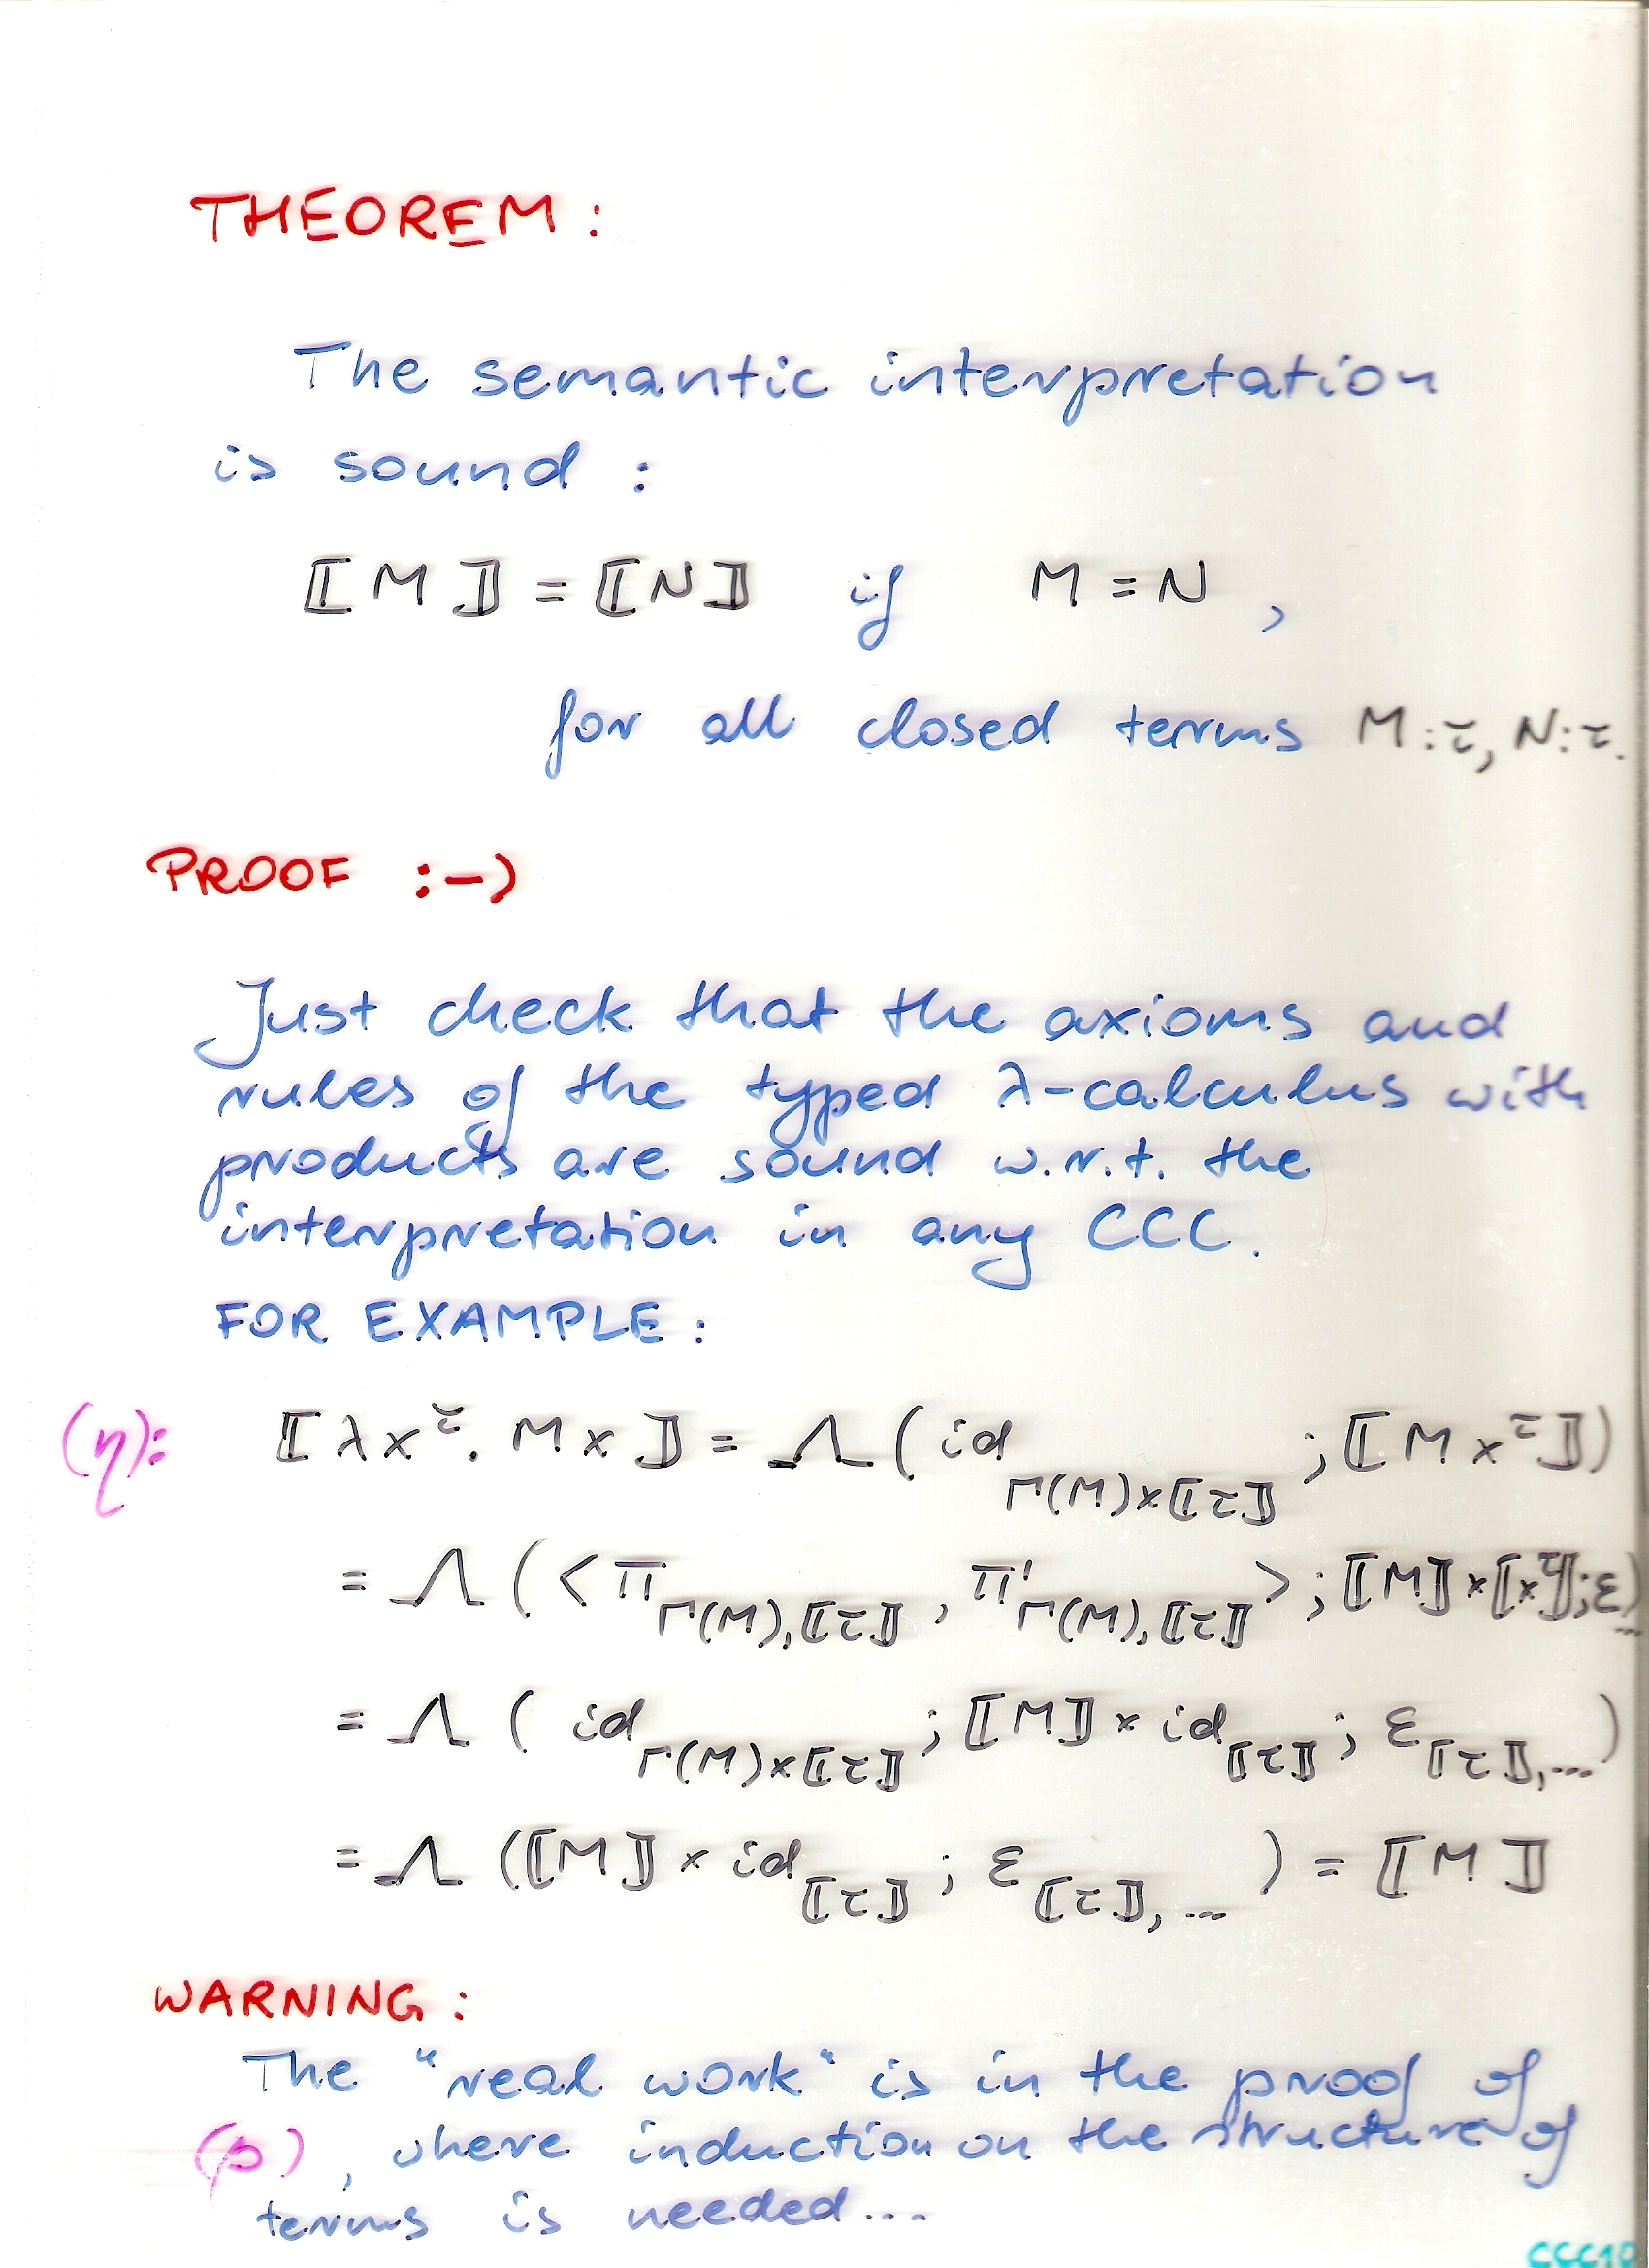 THEOREM :
The semantic interpretation
is sound :
⟦ M ⟧ = ⟦ N ⟧ if M = N ,
for all closed terms M:τ, N:τ.
PROOF :-)
Just check that the axioms and
rules of the typed λ-calculus with
products are sound w.r.t. the
interpretation in any CCC.
FOR EXAMPLE :
(η): ⟦ λx^τ. M x ⟧ = Λ ( id_Γ(M)×⟦τ⟧ ; ⟦ M x^τ ⟧ )
= Λ ( < π_Γ(M),⟦τ⟧ , π'_Γ(M),⟦τ⟧ > ; ⟦M⟧ × ⟦x^τ⟧ ; ε_... )
= Λ ( id_Γ(M)×⟦τ⟧ ; ⟦M⟧ × id_⟦τ⟧ ; ε_⟦τ⟧,... )
= Λ ( ⟦M⟧ × id_⟦τ⟧ ; ε_⟦τ⟧,... ) = ⟦ M ⟧
WARNING :
The "real work" is in the proof of
(β) , where induction on the structure of
terms is needed...
CCC10